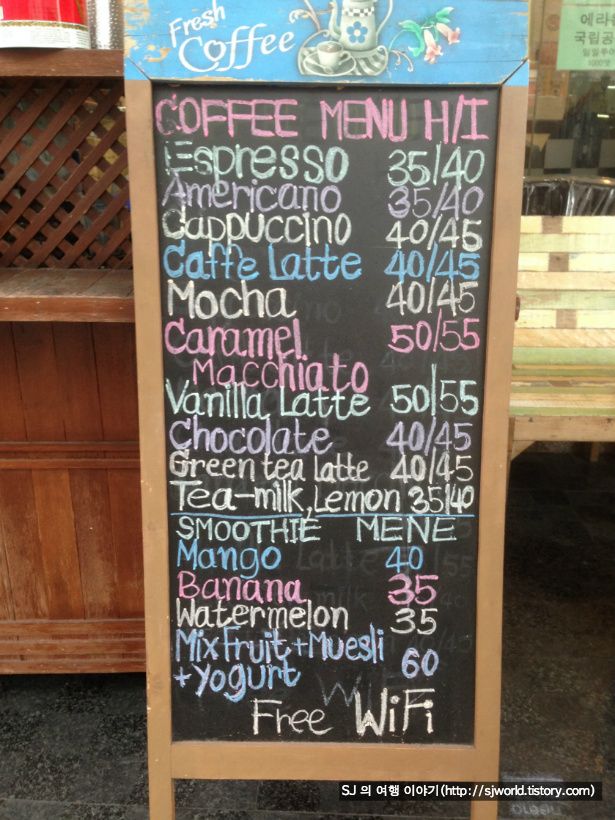 Fresh
Coffee
COFFEE MENU H/I
Espresso 35/40
Americano 35/40
Cappuccino 40/45
Caffe Latte 40/45
Mocha 40/45
Caramel 50/55
Macchiato
Vanilla Latte 50/55
Chocolate 40/45
Green tea Latte 40/45
Tea-milk, Lemon 35/40
SMOOTHIE MENE
Mango 40
Banana 35
Watermelon 35
Mix Fruit + Muesli
+ Yogurt 60
Free WiFi
에라
국립공
SJ 의 여행 이야기(http://sjworld.tistory.com)